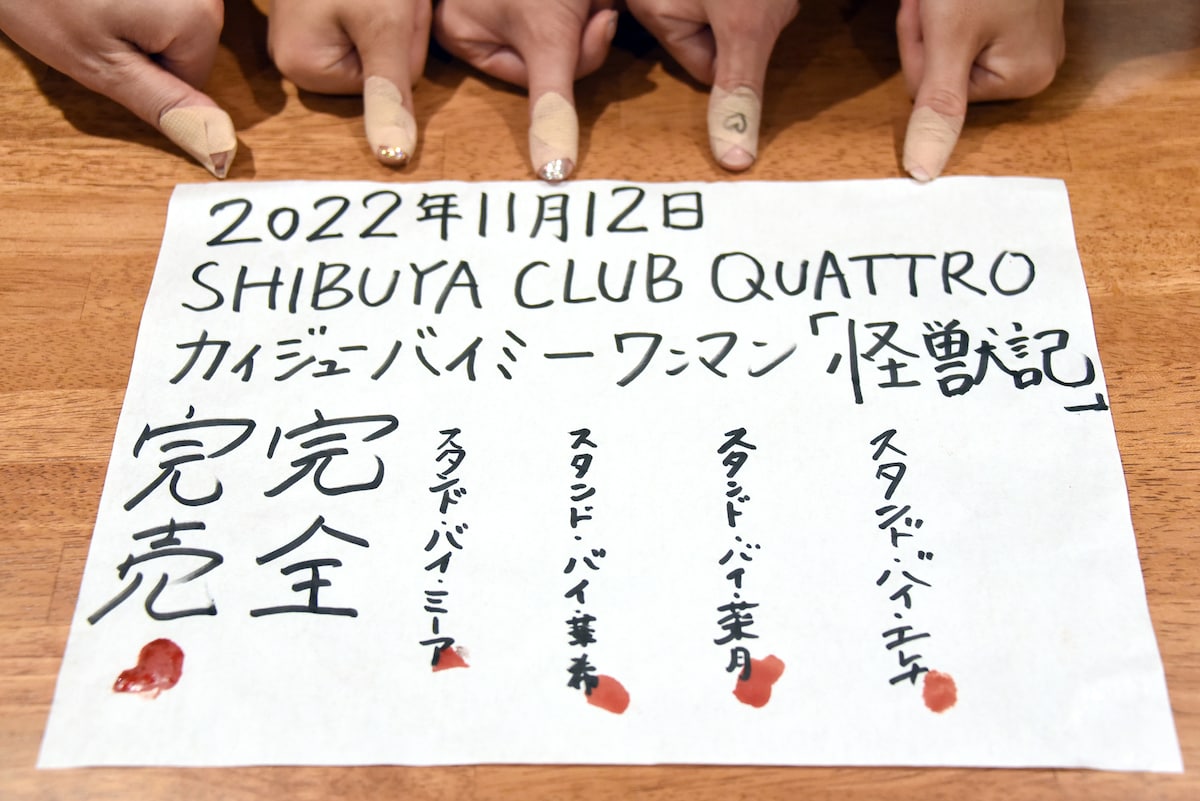 2022年11月12日
SHIBUYA CLUB QUATTRO
カイジューバイミーワンマン「怪獣記」
スタンド・バイ・
スタンド・バイ・菜月
スタンド・バイ・葉希
スタンド・バイ・ミーア
完全
完売